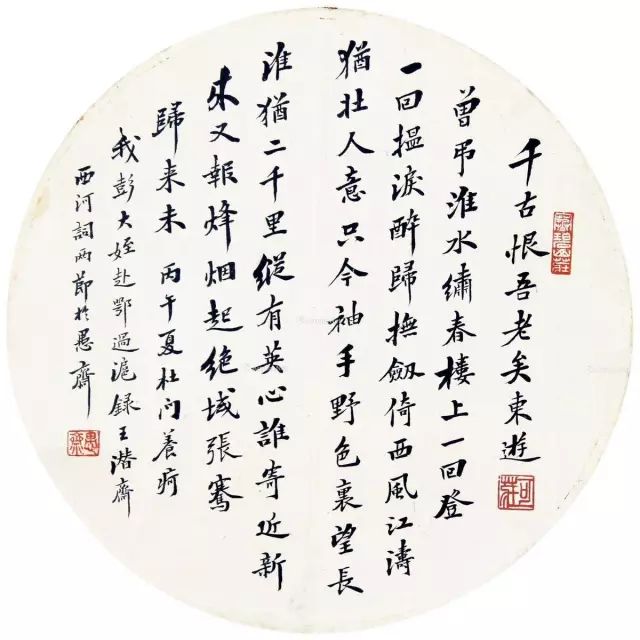 千古恨吾老矣東遊
曾弔淮水繡春樓上一回登
一回搵淚醉歸撫劔倚西風江濤
猶壯人意只今袖手野色裏望長
淮猶二千里縱有英心誰寄近新
來又報烽烟起絶域張騫
歸来未 丙午夏杜门養疴
我彭大姪赴鄂過滬錄王潜齋
西河詞两節於愚齋
愚齋